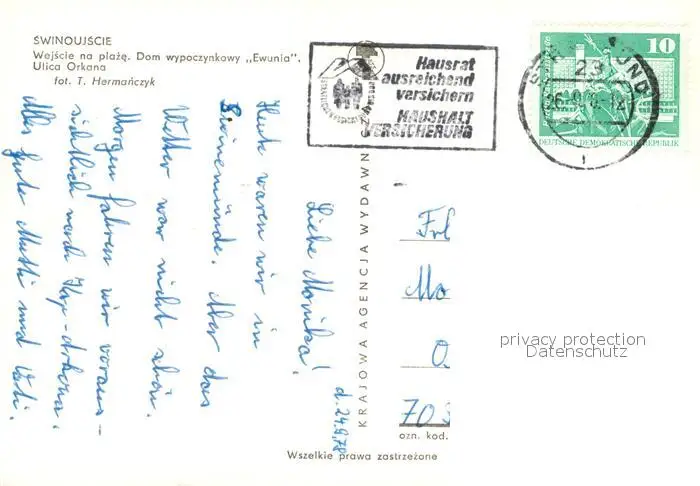 ŚWINOUJŚCIE
Wejście na plażę. Dom wypoczynkowy „Ewunia".
Ulica Orkana
fot. T. Hermańczyk
Hausrat
ausreichend
versichern
HAUSHALT
VERSICHERUNG
10
DEUTSCHE DEMOKRATISCHE REPUBLIK
d. 24.9.78
Liebe Monika!
Heute waren wir in
Swinemünde. Aber das
Wetter war nicht schön.
Morgen fahren wir voraus-
sichtlich nach Kap-Arkona.
Alles Gute Mutti und Vati.
KRAJOWA AGENCJA WYDAWN
Frl
Mo
O
703
ozn. kod.
Wszelkie prawa zastrzeżone
privacy protection
Datenschutz